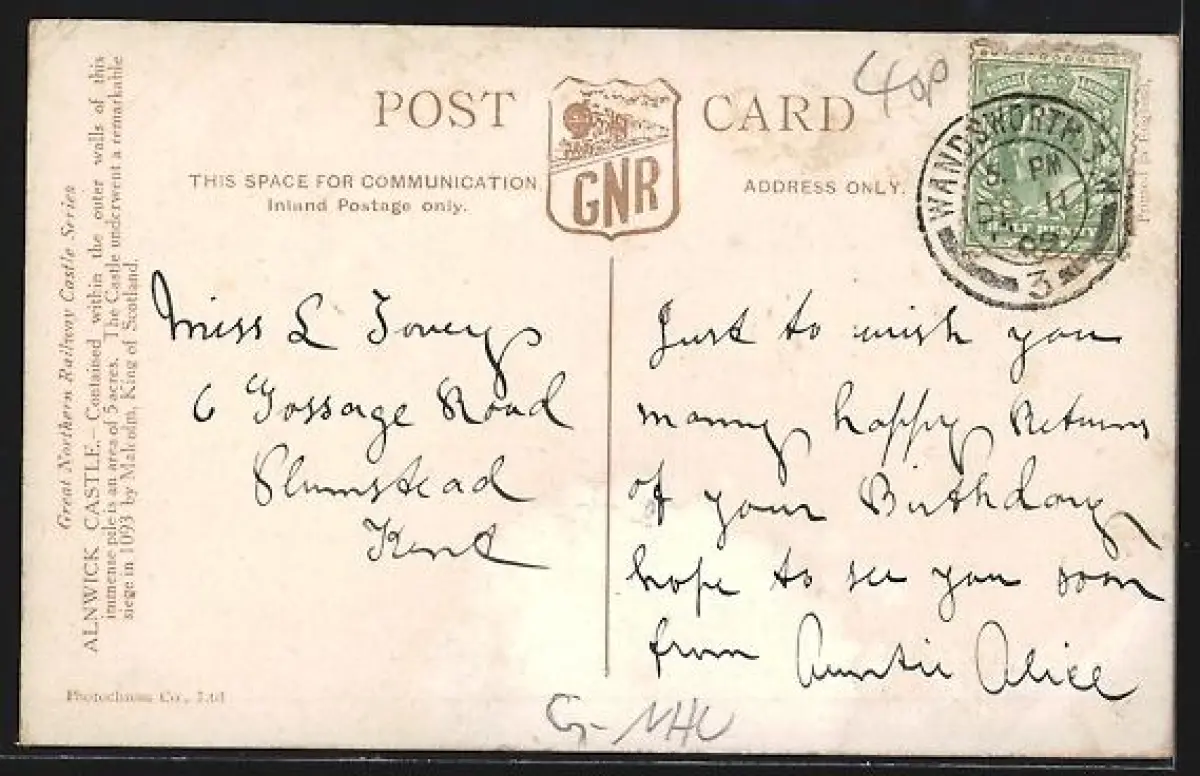 POST CARD
GNR
THIS SPACE FOR COMMUNICATION
Inland Postage only.
ADDRESS ONLY.
40p
WANDSWORTH
PM
11
09
3
Printed in England.
Great Northern Railway Castle Series
ALNWICK CASTLE.—Contained within the outer walls of this
immense pile is an area of 5 acres. The Castle underwent a remarkable
siege in 1093 by Malcolm, King of Scotland.
Miss L Tovey
6 Gossage Road
Plumstead
Kent
Just to wish you
many happy Returns
of your Birthday
hope to see you soon
from Auntie Alice
Photochrom Co., Ltd